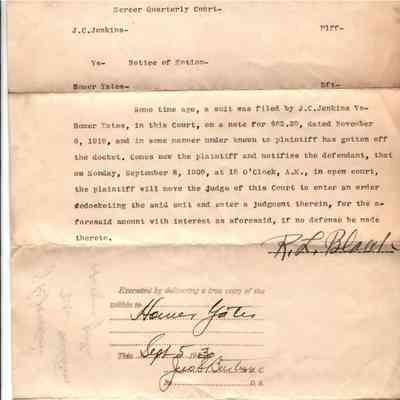 Mercer Quarterly Court-
J.C.Jenkins- Plff-
Vs- Notice of Motion-
Homer Yates- Dft-
Some time ago, a suit was filed by J.C.Jenkins Vs-
Homer Yates, in this Court, on a note for $62.25, dated November
6, 1916, and in some manner under known to plaintiff has gotten off
the docket. Comes now the plaintiff and notifies the defendant, that
on Monday, September 8, at 10 O'Clock, A.M., in open court,
the plaintiff will move the Judge of this Court to enter an order
redocketing the said suit and enter a judgment therein, for the a-
foresaid amount with interest as aforesaid, if no defense be made
thereto.
R.L. Black
Executed by delivering a true copy of the
within to
Homer Yates
This Sept 5 1930
By D. S.